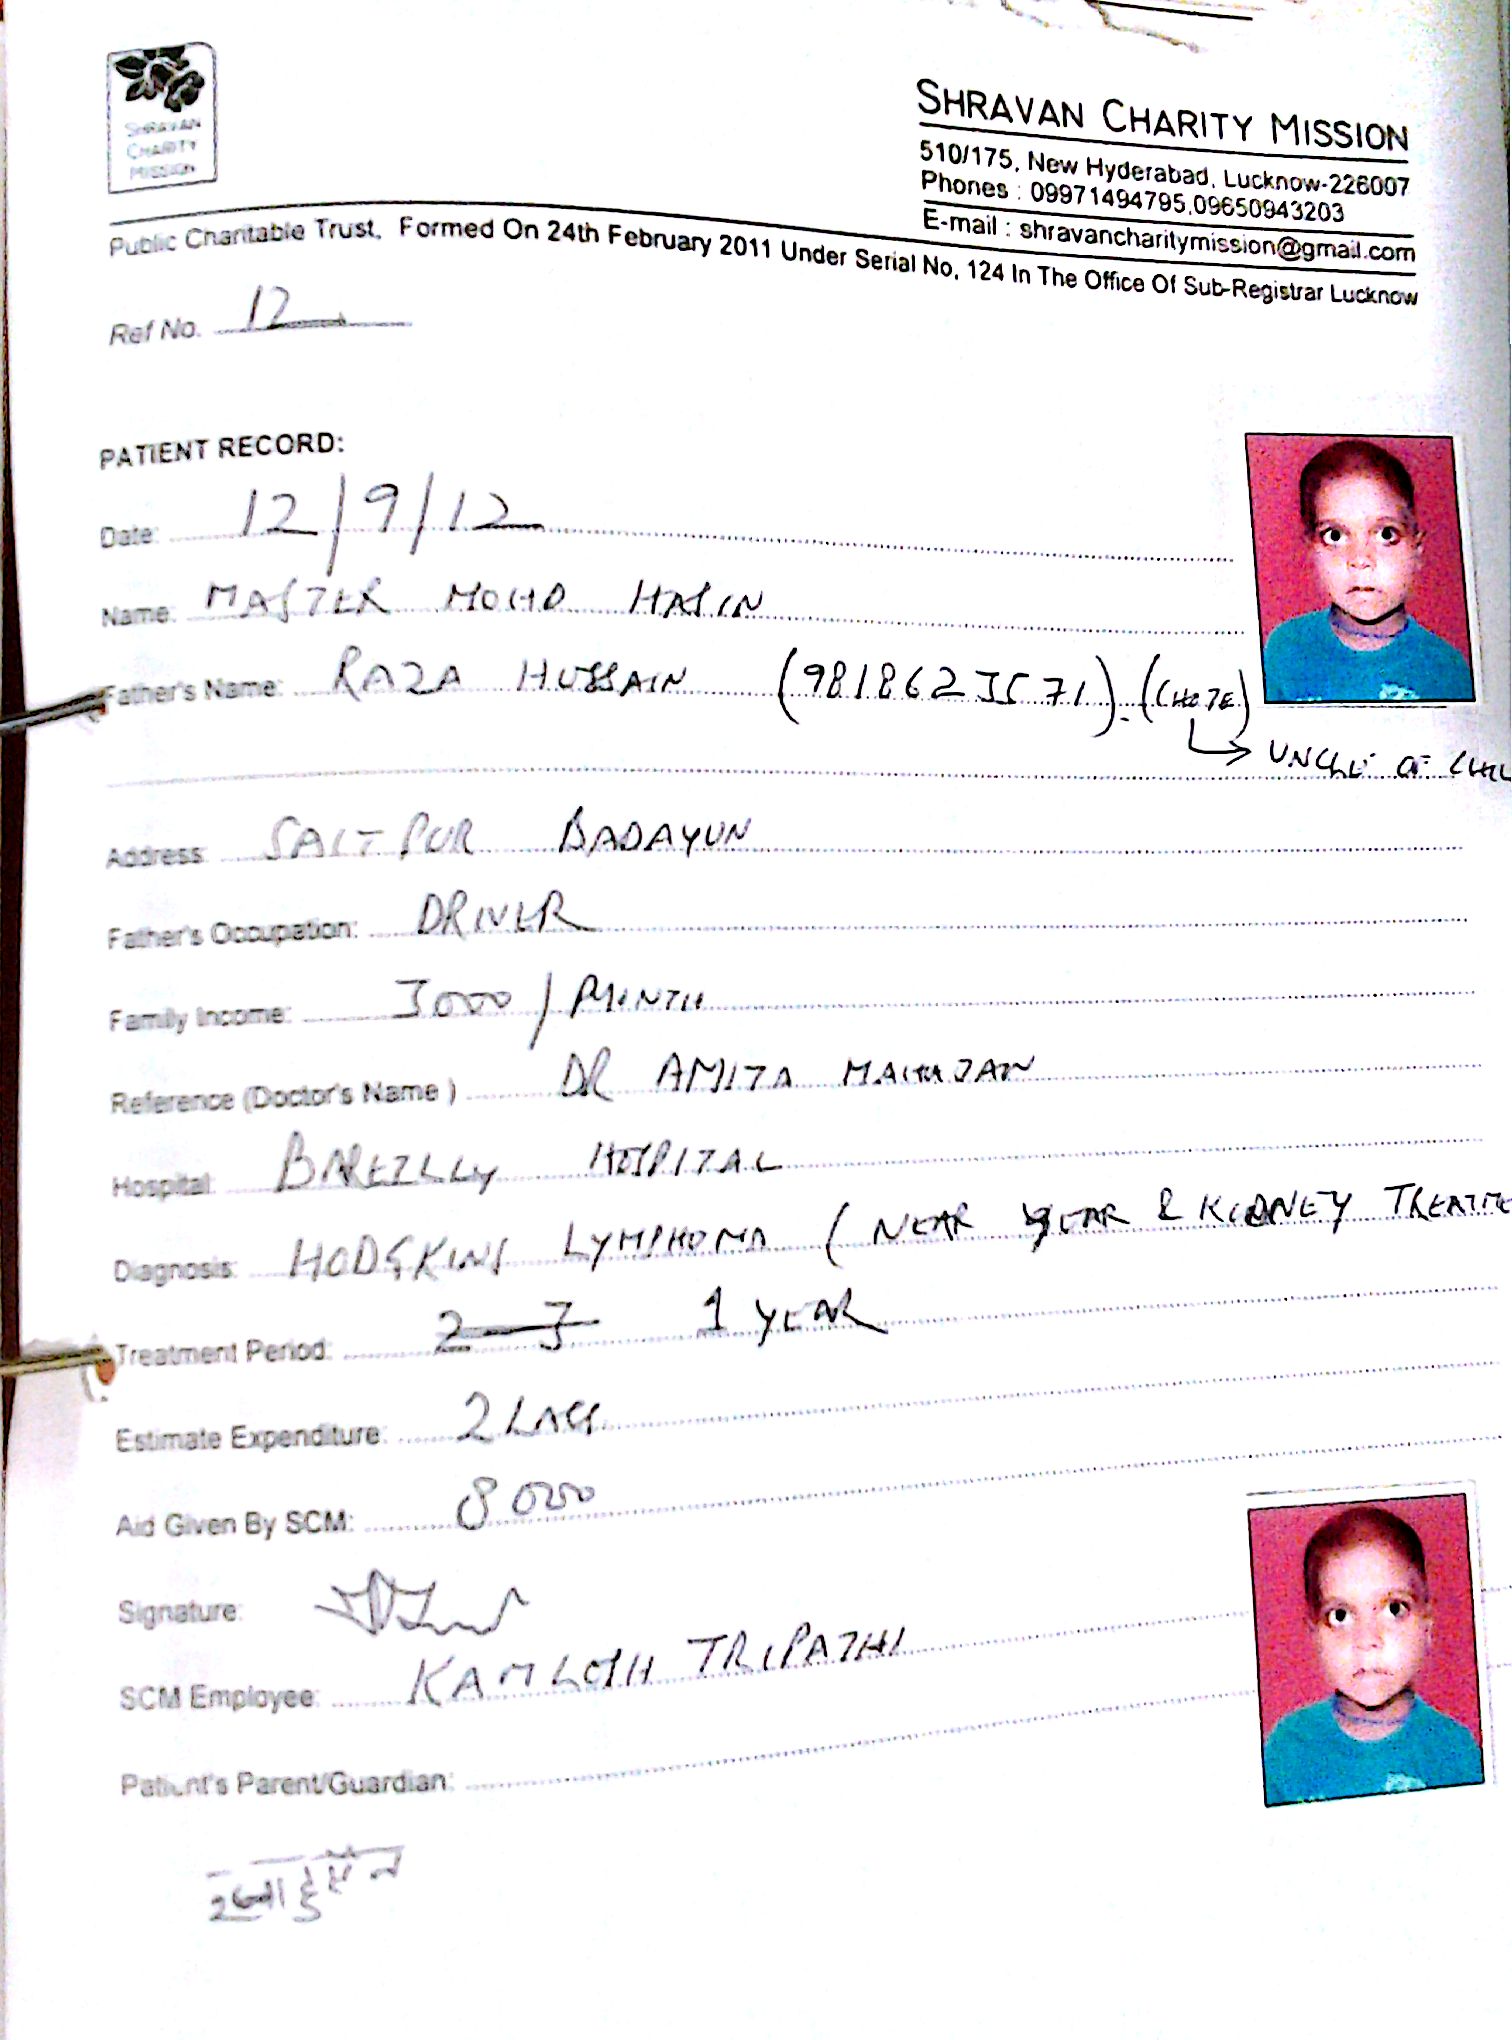 SHRAVAN
CHARITY
MISSION
SHRAVAN CHARITY MISSION
510/175, New Hyderabad, Lucknow-226007
Phones : 09971494795,09650943203
E-mail : shravancharitymission@gmail.com
Public Charitable Trust, Formed On 24th February 2011 Under Serial No. 124 In The Office Of Sub-Registrar Lucknow
Ref No. 12
PATIENT RECORD:
Date: 12/9/12
Name: MASTER MOHD HASIN
Father's Name: RAZA HUSSAIN (9818623571). (CHOTE)
UNCLE OF
Address: SAITPUR BADAYUN
Father's Occupation: DRIVER
Family Income: 3000/MONTH
Reference (Doctor's Name) DR AMITA MAHAJAN
Hospital: BAREILLY HOSPITAL
Diagnosis: HODGKINS LYMPHOMA (NEAR & KIDNEY
Treatment Period: 2-3 1 YEAR
Estimate Expenditure: 2 LACS
Aid Given By SCM: 8000
Signature:
SCM Employee: KAMLESH TRIPATHI
Patient's Parent/Guardian:
रजा हुसैन